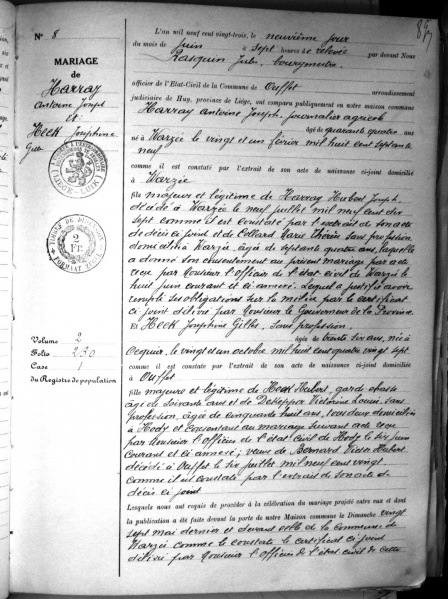 89
N° 8
MARIAGE
DE
Harray
Antoine Joseph
et
Heck Joséphine
Gilles
2 FR
Volume 2
Folio 230
Case 1
du Registre de population
L'an mil neuf cent vingt-trois, le neuvième jour
du mois de Juin à sept heures de relevée par devant Nous
Rasquin Jules, bourgmestre
officier de l'Etat-Civil de la Commune de Ouffet arrondissement
judiciaire de Huy, province de Liége, ont comparu publiquement en notre maison commune
Harray Antoine Joseph, journalier agricole
âgé de quarante quatre ans
né à Warzée le vingt et un février mil huit cent septante
neuf
comme il est constaté par l'extrait de son acte de naissance ci-joint domicilié
à Warzée
fils majeur et légitime de Harray Hubert Joseph,
décédé à Warzée le neuf juillet mil neuf cent dix
sept comme il est constaté par l'extrait de son acte
de décès ci joint et de Collard Marie Thérèse sans profession
domiciliée à Warzée, âgée de septante quatre ans, laquelle
a donné son consentement au présent mariage par acte
reçu par Monsieur l'officier de l'état civil de Warzée le
huit juin courant et ci annexé. Lequel a justifié avoir
rempli ses obligations sur la milice par le certificat
ci joint délivré par Monsieur le Gouverneur de la Province
Et Heck Joséphine Gilles, sans profession,
âgée de trente six ans, née à
Ocquier, le vingt et un octobre mil huit cent quatre vingt sept
comme il est constaté par l'extrait de son acte de naissance ci-joint domiciliée
à Ouffet
fille majeure et légitime de Heck Hubert, garde chasse
âgé de soixante ans et de Victorine Louise, sans
profession, âgée de cinquante huit ans, tous deux domiciliés
à Hody et consentant au mariage suivant acte reçu
par Monsieur l'officier de l'état civil de Hody le six juin
courant et ci annexé; veuve de Bernard Victor Hubert
décédé à Ouffet le six juillet mil neuf cent vingt
comme il est constaté par l'extrait de son acte de
décès ci joint
Lesquels nous ont requis de procéder à la célébration du mariage projeté entre eux et dont
la publication a été faite devant la porte de notre Maison commune le Dimanche vingt
sept mai dernier et devant celle de la commune de
Warzée comme le constate le certificat ci joint
délivré par Monsieur l'officier de l'état civil de cette